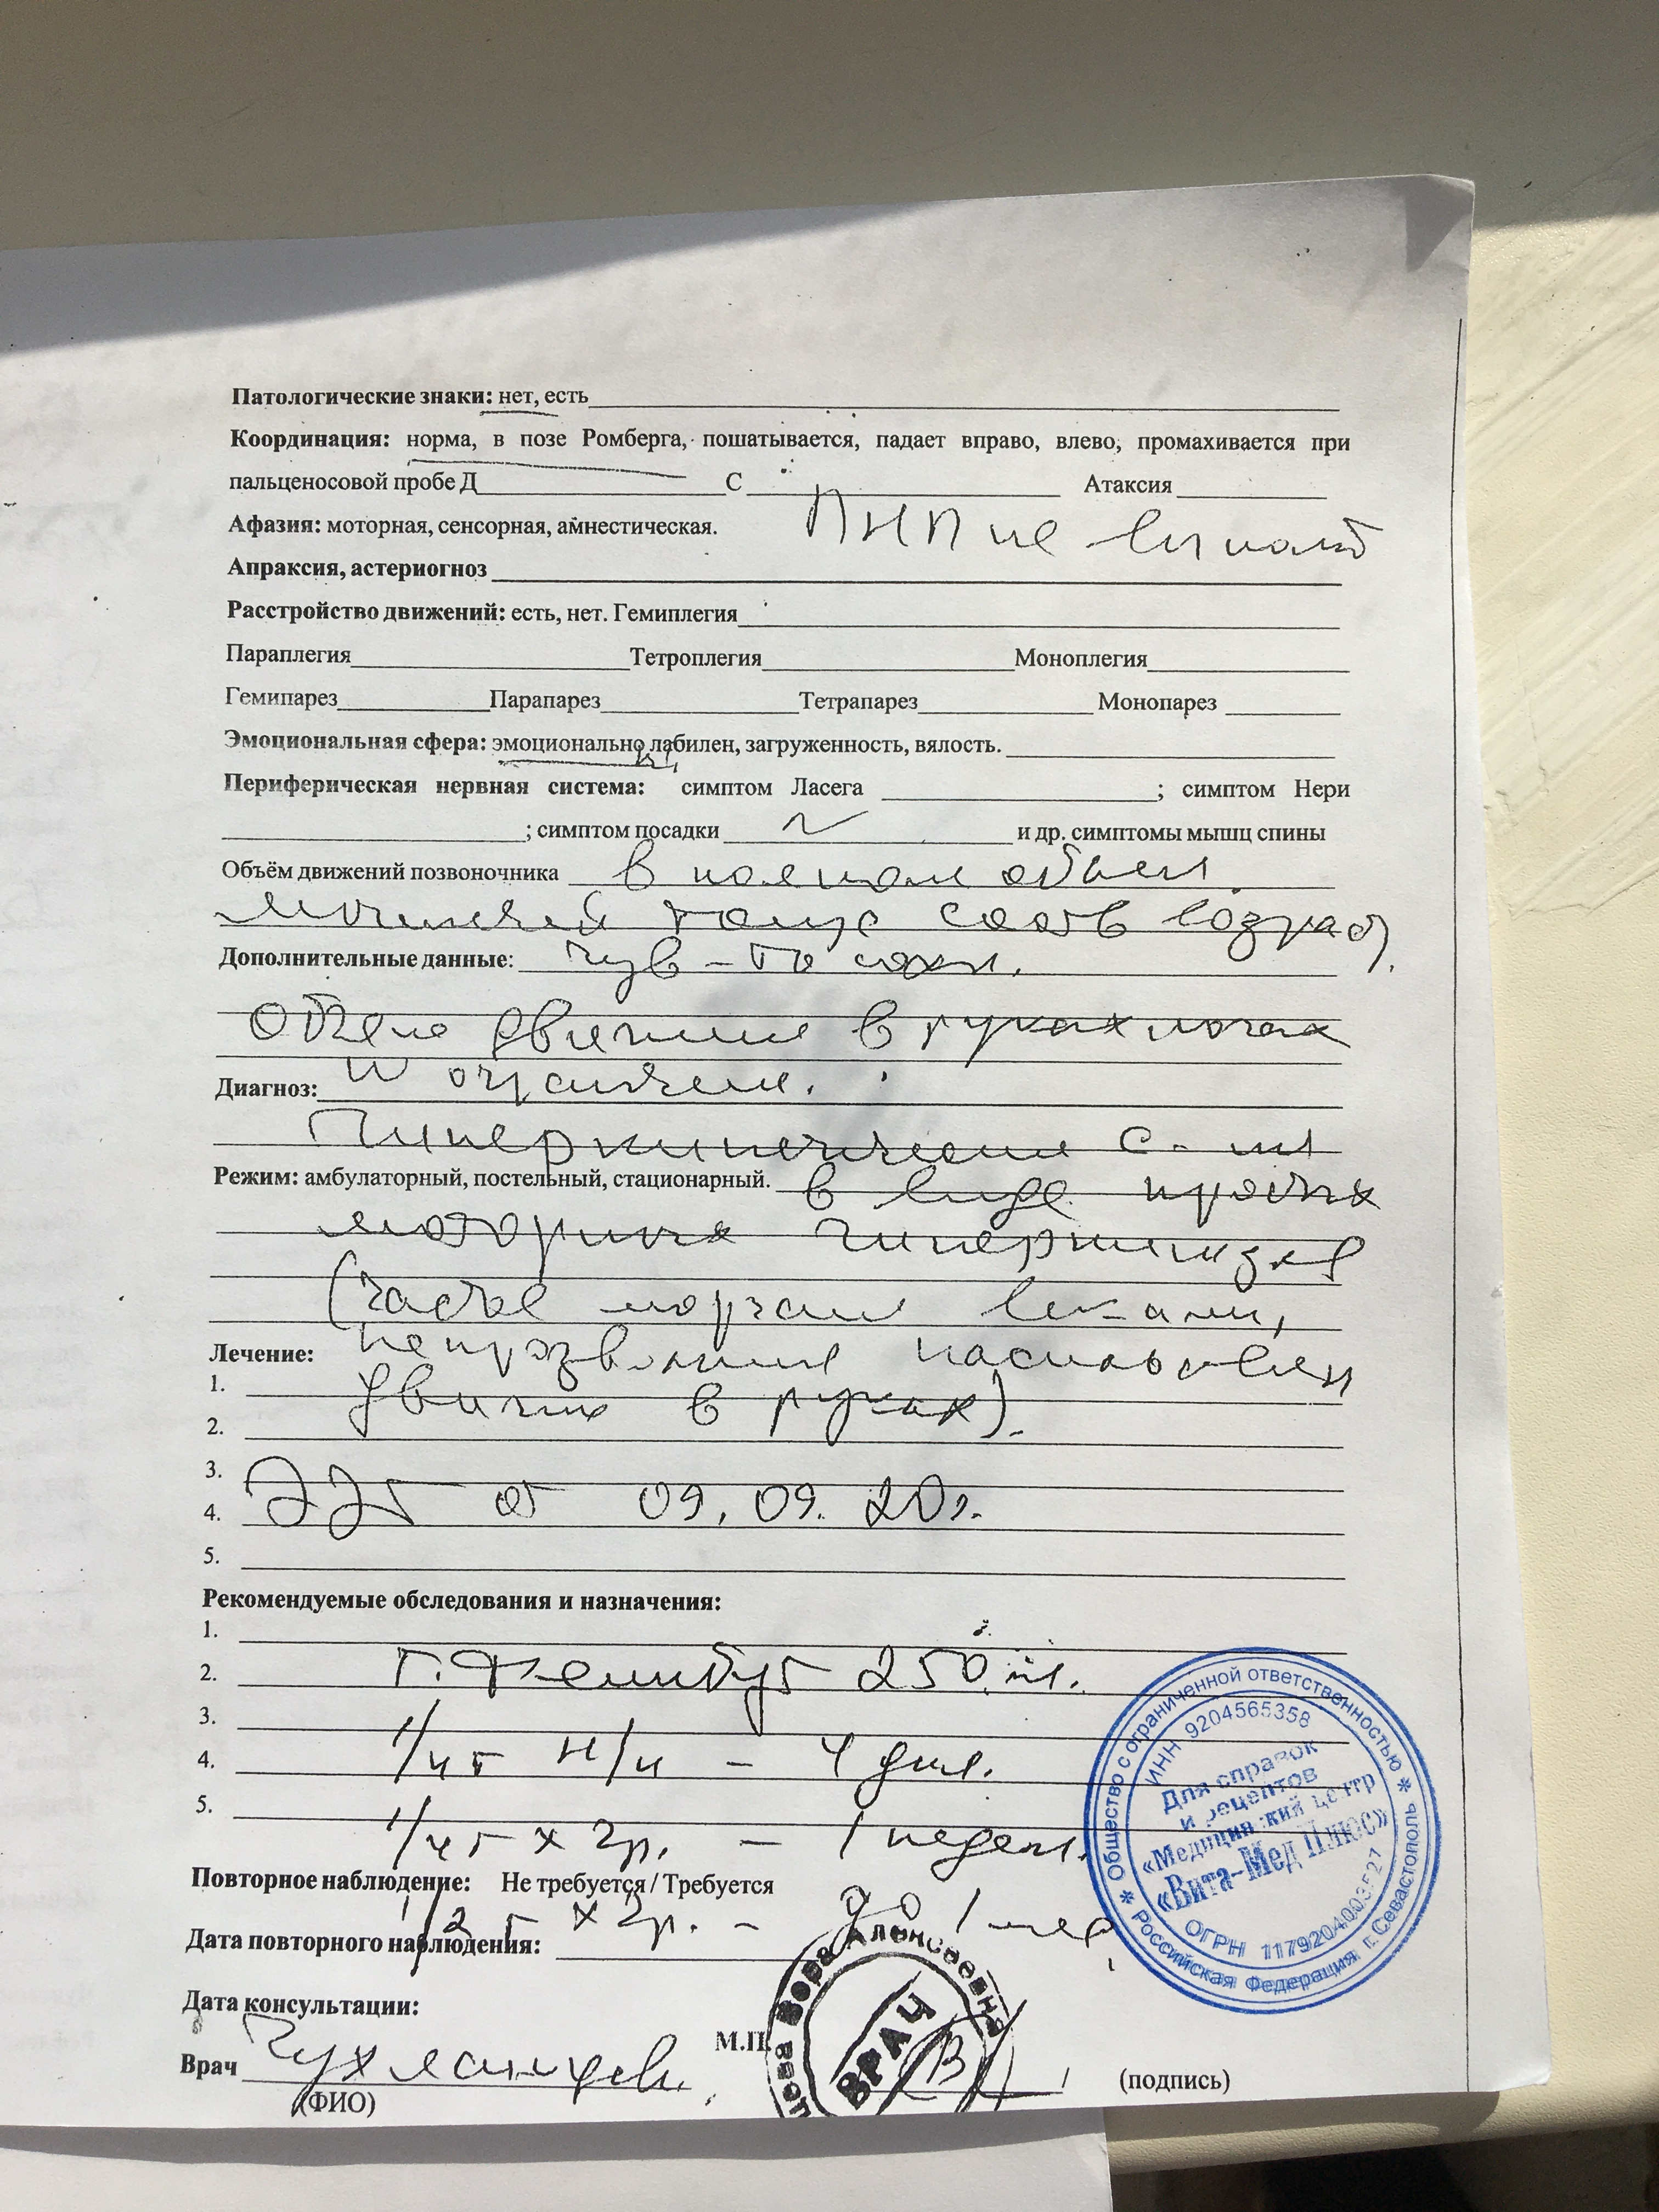 Патологические знаки: нет, есть
Координация: норма, в позе Ромберга, пошатывается, падает вправо, влево, промахивается при
пальценосовой пробе Д С Атаксия
Афазия: моторная, сенсорная, амнестическая. ПНП не
Апраксия, астериогноз
Расстройство движений: есть, нет. Гемиплегия
Параплегия Тетроплегия Моноплегия
Гемипарез Парапарез Тетрапарез Монопарез
Эмоциональная сфера: эмоционально лабилен, загруженность, вялость.
Периферическая нервная система: симптом Ласега ; симптом Нери
; симптом посадки и др. симптомы мышц спины
Объём движений позвоночника в полном объеме
мышечный тонус соотв возраст.
Дополнительные данные: чув-ть сохр.
Объем движения в руках ногах
Диагноз: не ограничен.
Гиперкинетический с-м
Режим: амбулаторный, постельный, стационарный. в виде простых
моторных гиперкинезов
(частое моргание веками,
Лечение: непроизвольные
1. движения в руках).
2.
3.
4. ЭЭГ от 09.09.20г.
5.
Рекомендуемые обследования и назначения:
1.
2. т. Фенибут 250
3.
4. 1/4 т н/н - 4 дня.
5.
1/4 т х 2р. - 1 недел.
Повторное наблюдение: Не требуется / Требуется
1/2 т х 2р. - до 1 мес
Дата повторного наблюдения:
Дата консультации:
М.П.
Врач (подпись)
(ФИО)
Вера Алексеевна
ВРАЧ
Общество с ограниченной ответственностью
Российская Федерация г. Севастополь
ИНН 9204565358
Для справок
и рецептов
«Медицинский центр
«Вита-Мед Плюс»
ОГРН